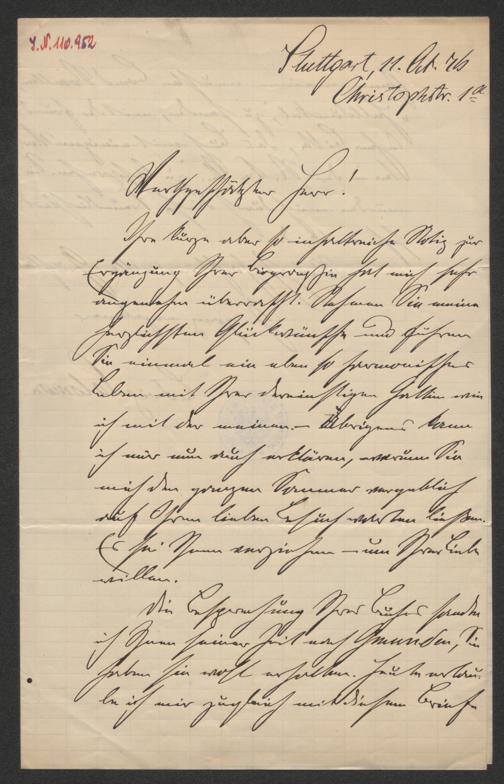 I.N. 110.952
Stuttgart, 11. Okt. 76
Christophstr. 1a
Werthgeschätzter Herr!
Ihre kurze aber so inhaltreiche Notiz zur
Ergänzung Ihrer Biographie hat mich sehr
angenehm überrascht. Nehmen Sie meine
herzlichsten Glückwünsche und führen
Sie einmal ein eben so harmonisches
Leben mit Ihrer dereinstigen Gattin wie
ich mit der meinen. – Übrigens kann
ich mir nun auch erklären, warum Sie
mich den ganzen Sommer vergeblich
auf Ihren lieben Besuch warten ließen.
Es sei Ihnen verziehen – um Ihrer Liebe
willen.
Die Besprechung Ihres Buches sandte
ich Ihnen seiner Zeit nach Gmunden, Sie
haben sie wohl erhalten. Heute erlau-
be ich mir zugleich mit diesem Briefe